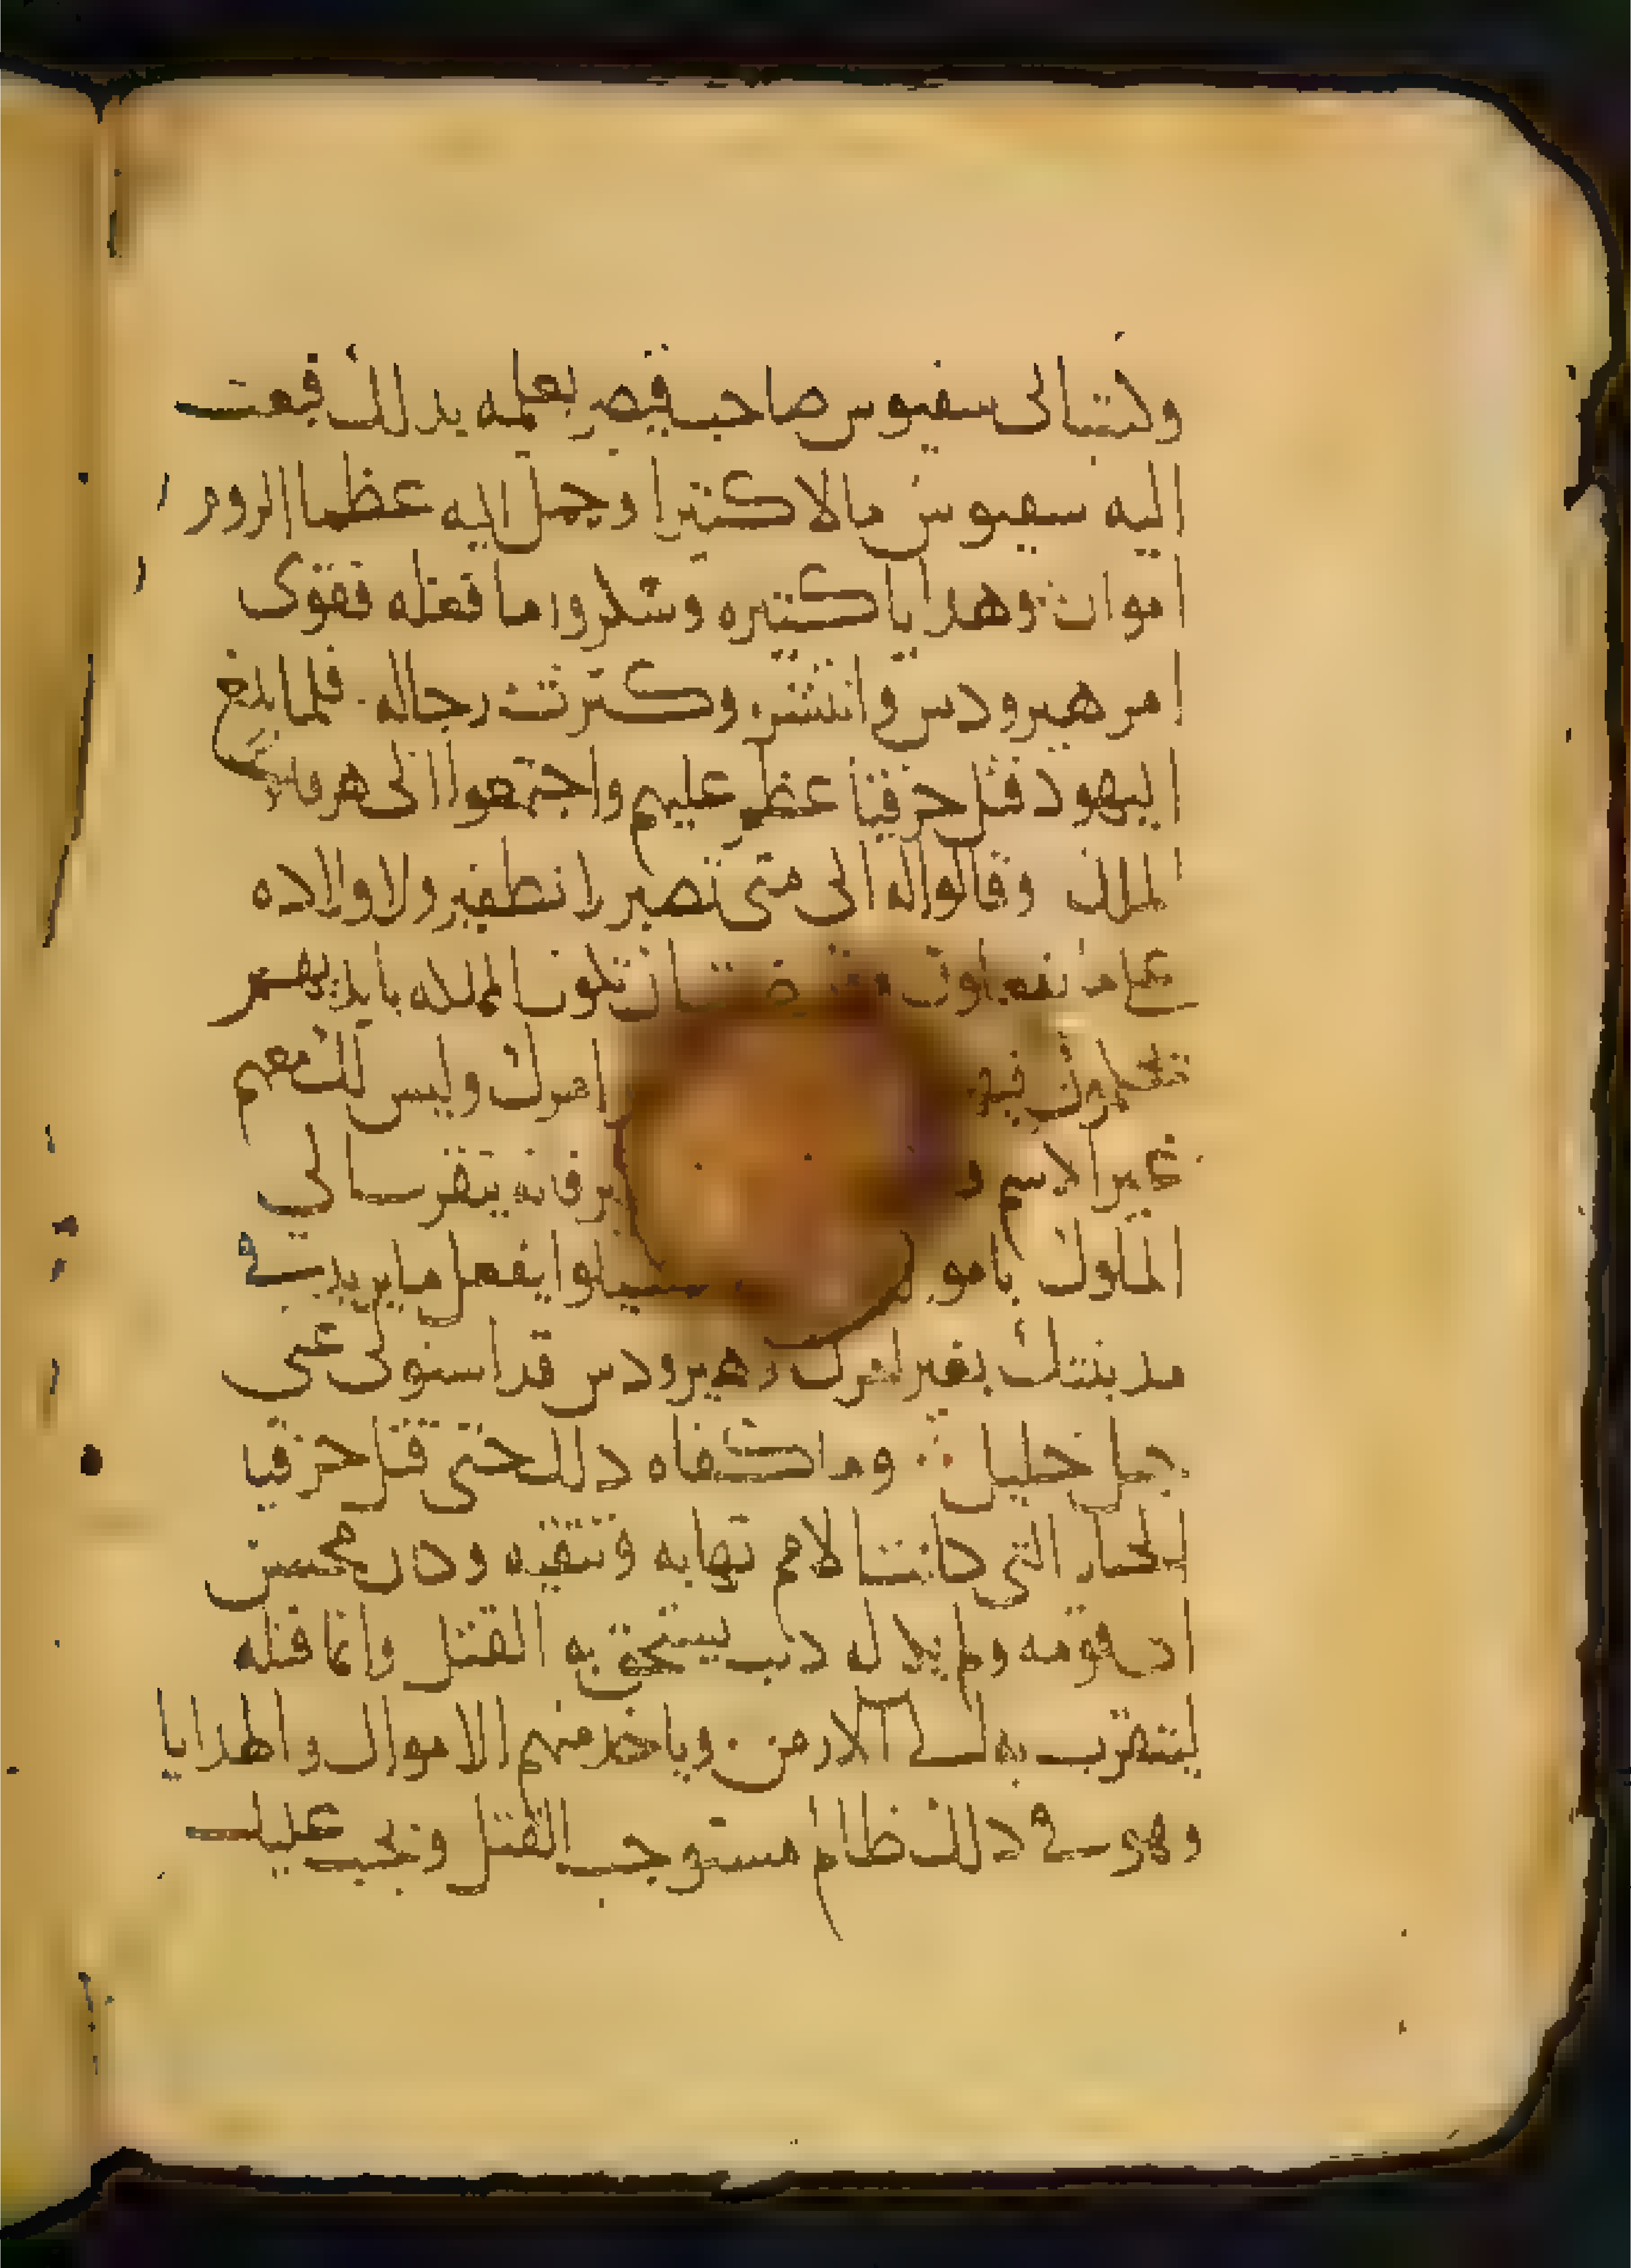 وكتب الى سفيوس صاحب قيصر يعلمه بدلك فبعت
اليه سفيوس مالا كتيرا وحمل اليه عظما الروم
اموال وهدايا كتيره وشكروا ما فعله فقوى
امر هيرودس وانتشر وكترت رجاله فلما بلغ
اليهود قتل حزقيا عظم عليهم واجتمعوا الى هرقانوس
الملك وقالوا له الى متى تصبر لانطفير ولاولاده
على ما يفعلون ان تكون المملكه بايديهم
امرك وليس لك معهم
غير الاسم فانه يتقرب الى
الملوك باموا يفعل ما يريد في
مدينتك بغير امرك وهيرودس قد استولى على
جبل خليل وما كفاه دلك حتى قتل حزقيا
الجبار التي كانت الامم تهابه وتتقيه وكان محسن
الى قومه ولم يكن له دنب يستحق به القتل وانما قتله
ليتقرب به الى الارمن وياخد منهم الاموال والهدايا
وهو في دلك ظالم مستوجب القتل ويجب عليك